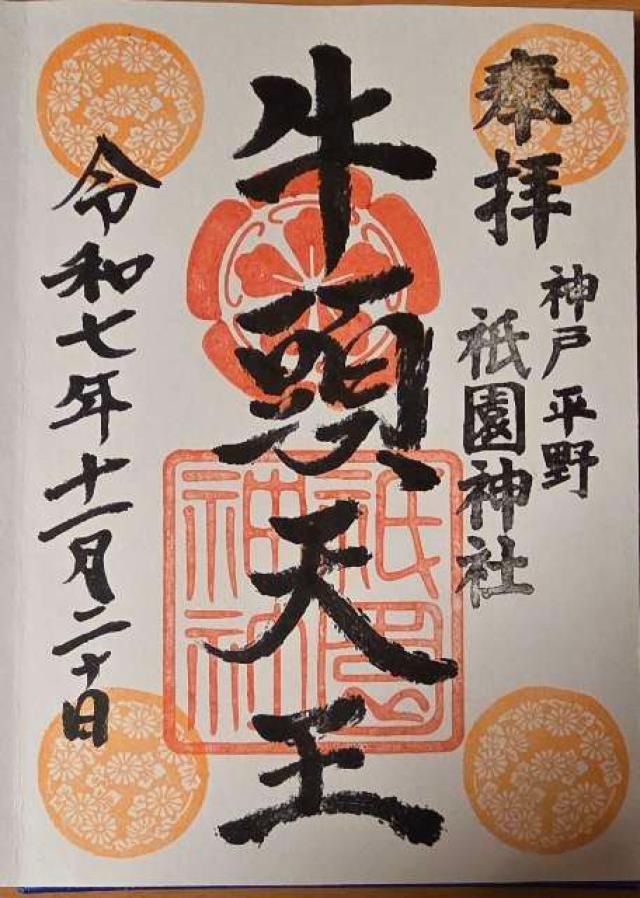 奉拝
神戸平野
祇園神社
牛頭天王
祇園
神社
令和七年十一月二十日